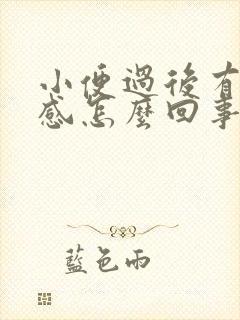 小便過後有
感怎麼回事
藍色雨